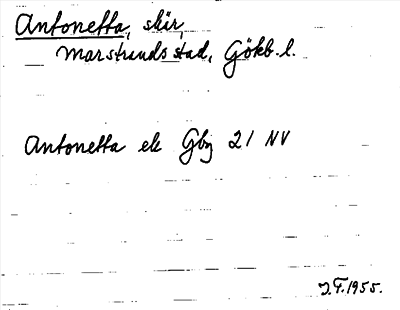 Antonetta, skär,
Marstrands stad, Gökb. l.
Antonetta ek Gbg 21 NV
J.F. 1955.